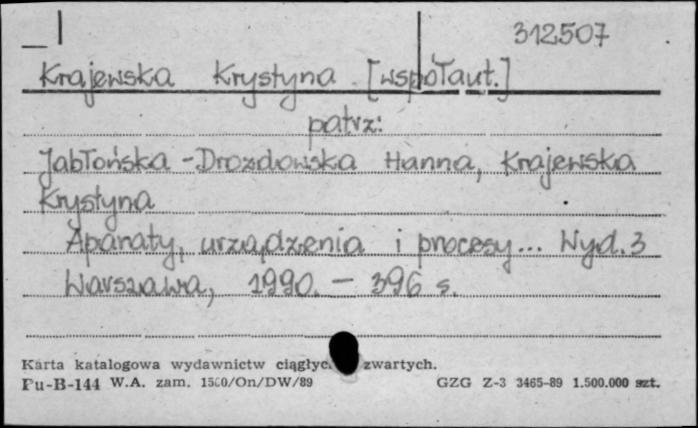 312507
Krajewska Krystyna [współaut.]
patrz:
Jabłońska-Drozdowska Hanna, Krajewska
Krystyna
Aparaty, urządzenia i procesy... Wyd. 3
Warszawa, 1990. - 396 s.
Karta katalogowa wydawnictw ciągłyc zwartych.
Pu-B-144 W.A. zam. 1500/On/DW/89 GZG Z-3 3465-89 1.500.000 szt.